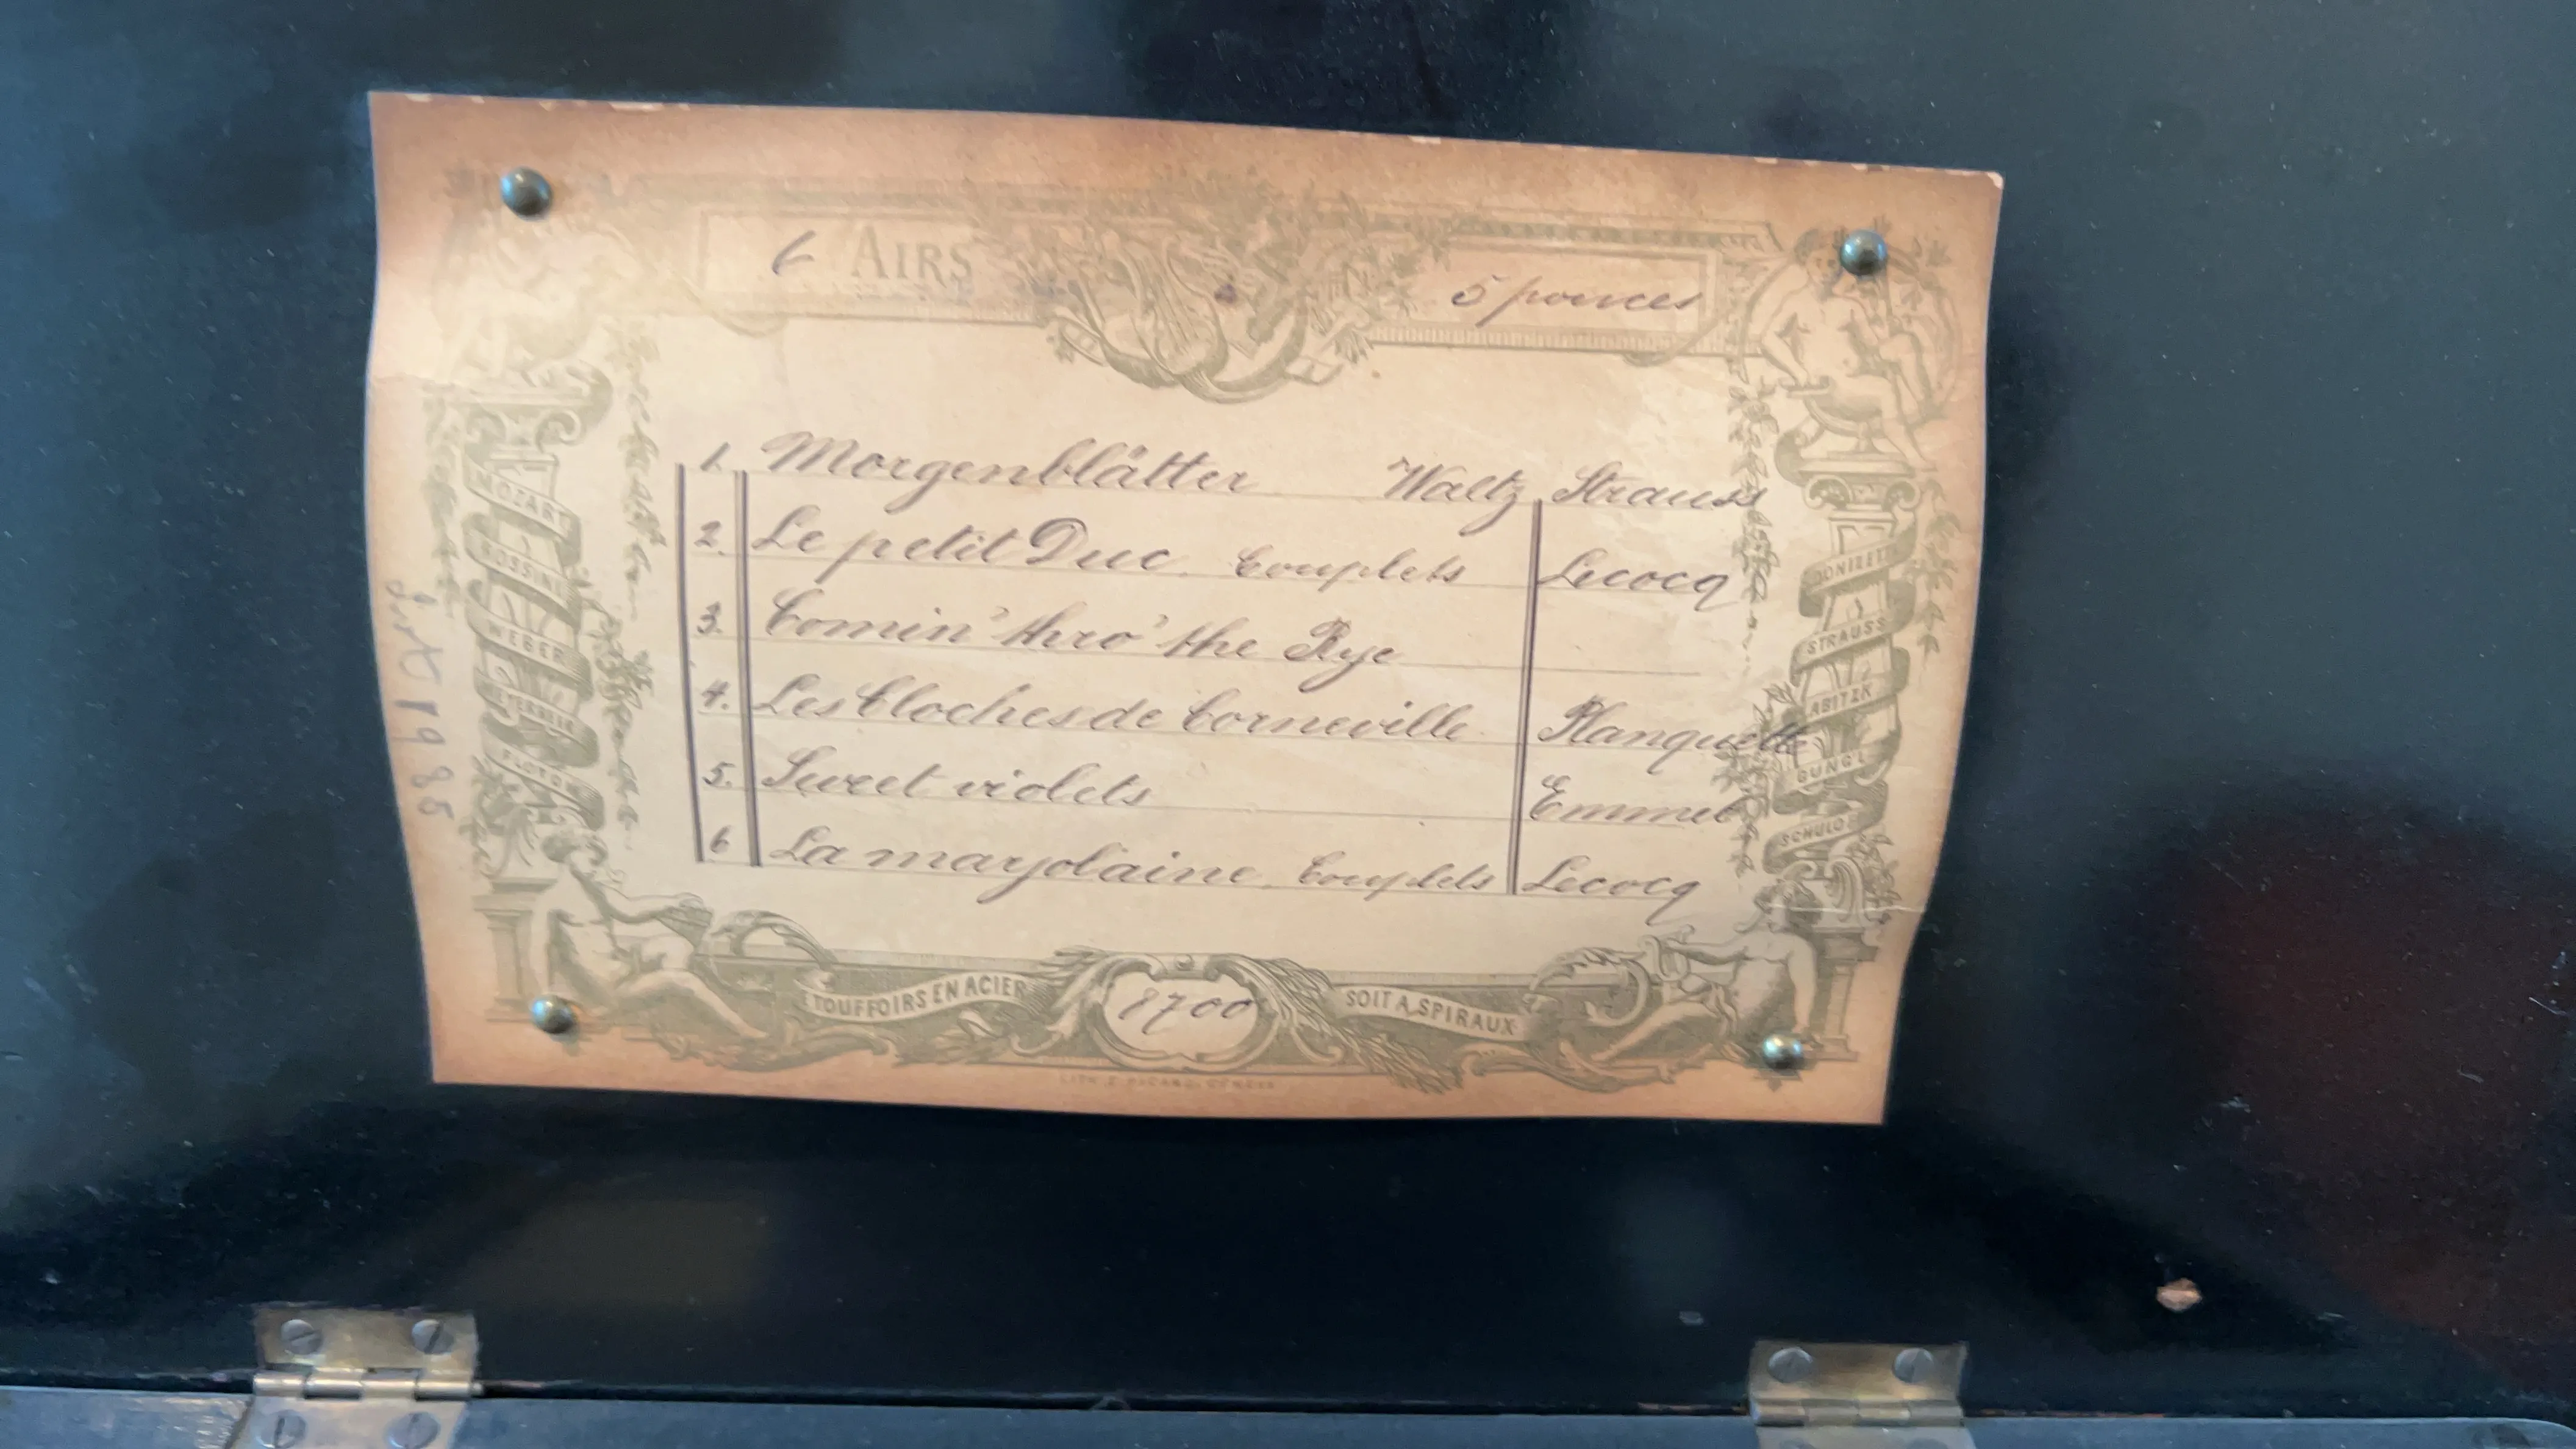 6 AIRS
5 pouces
1. Morgenblätter Waltz Strauss
2. Le petit Duc. Couplets Lecocq
3. Comin' thro' the Rye
4. Les Cloches de Corneville Planquette
5. Sweet violets Emmet
6 La marjolaine. Couplets Lecocq
MOZART
ROSSINI
WEBER
MEYERBEER
FLOTOW
DONIZETTI
STRAUSS
ABITZK
GUNGL
SCHULOF
ETOUFFOIRS EN ACIER
8700
SOIT A SPIRAUX
19885